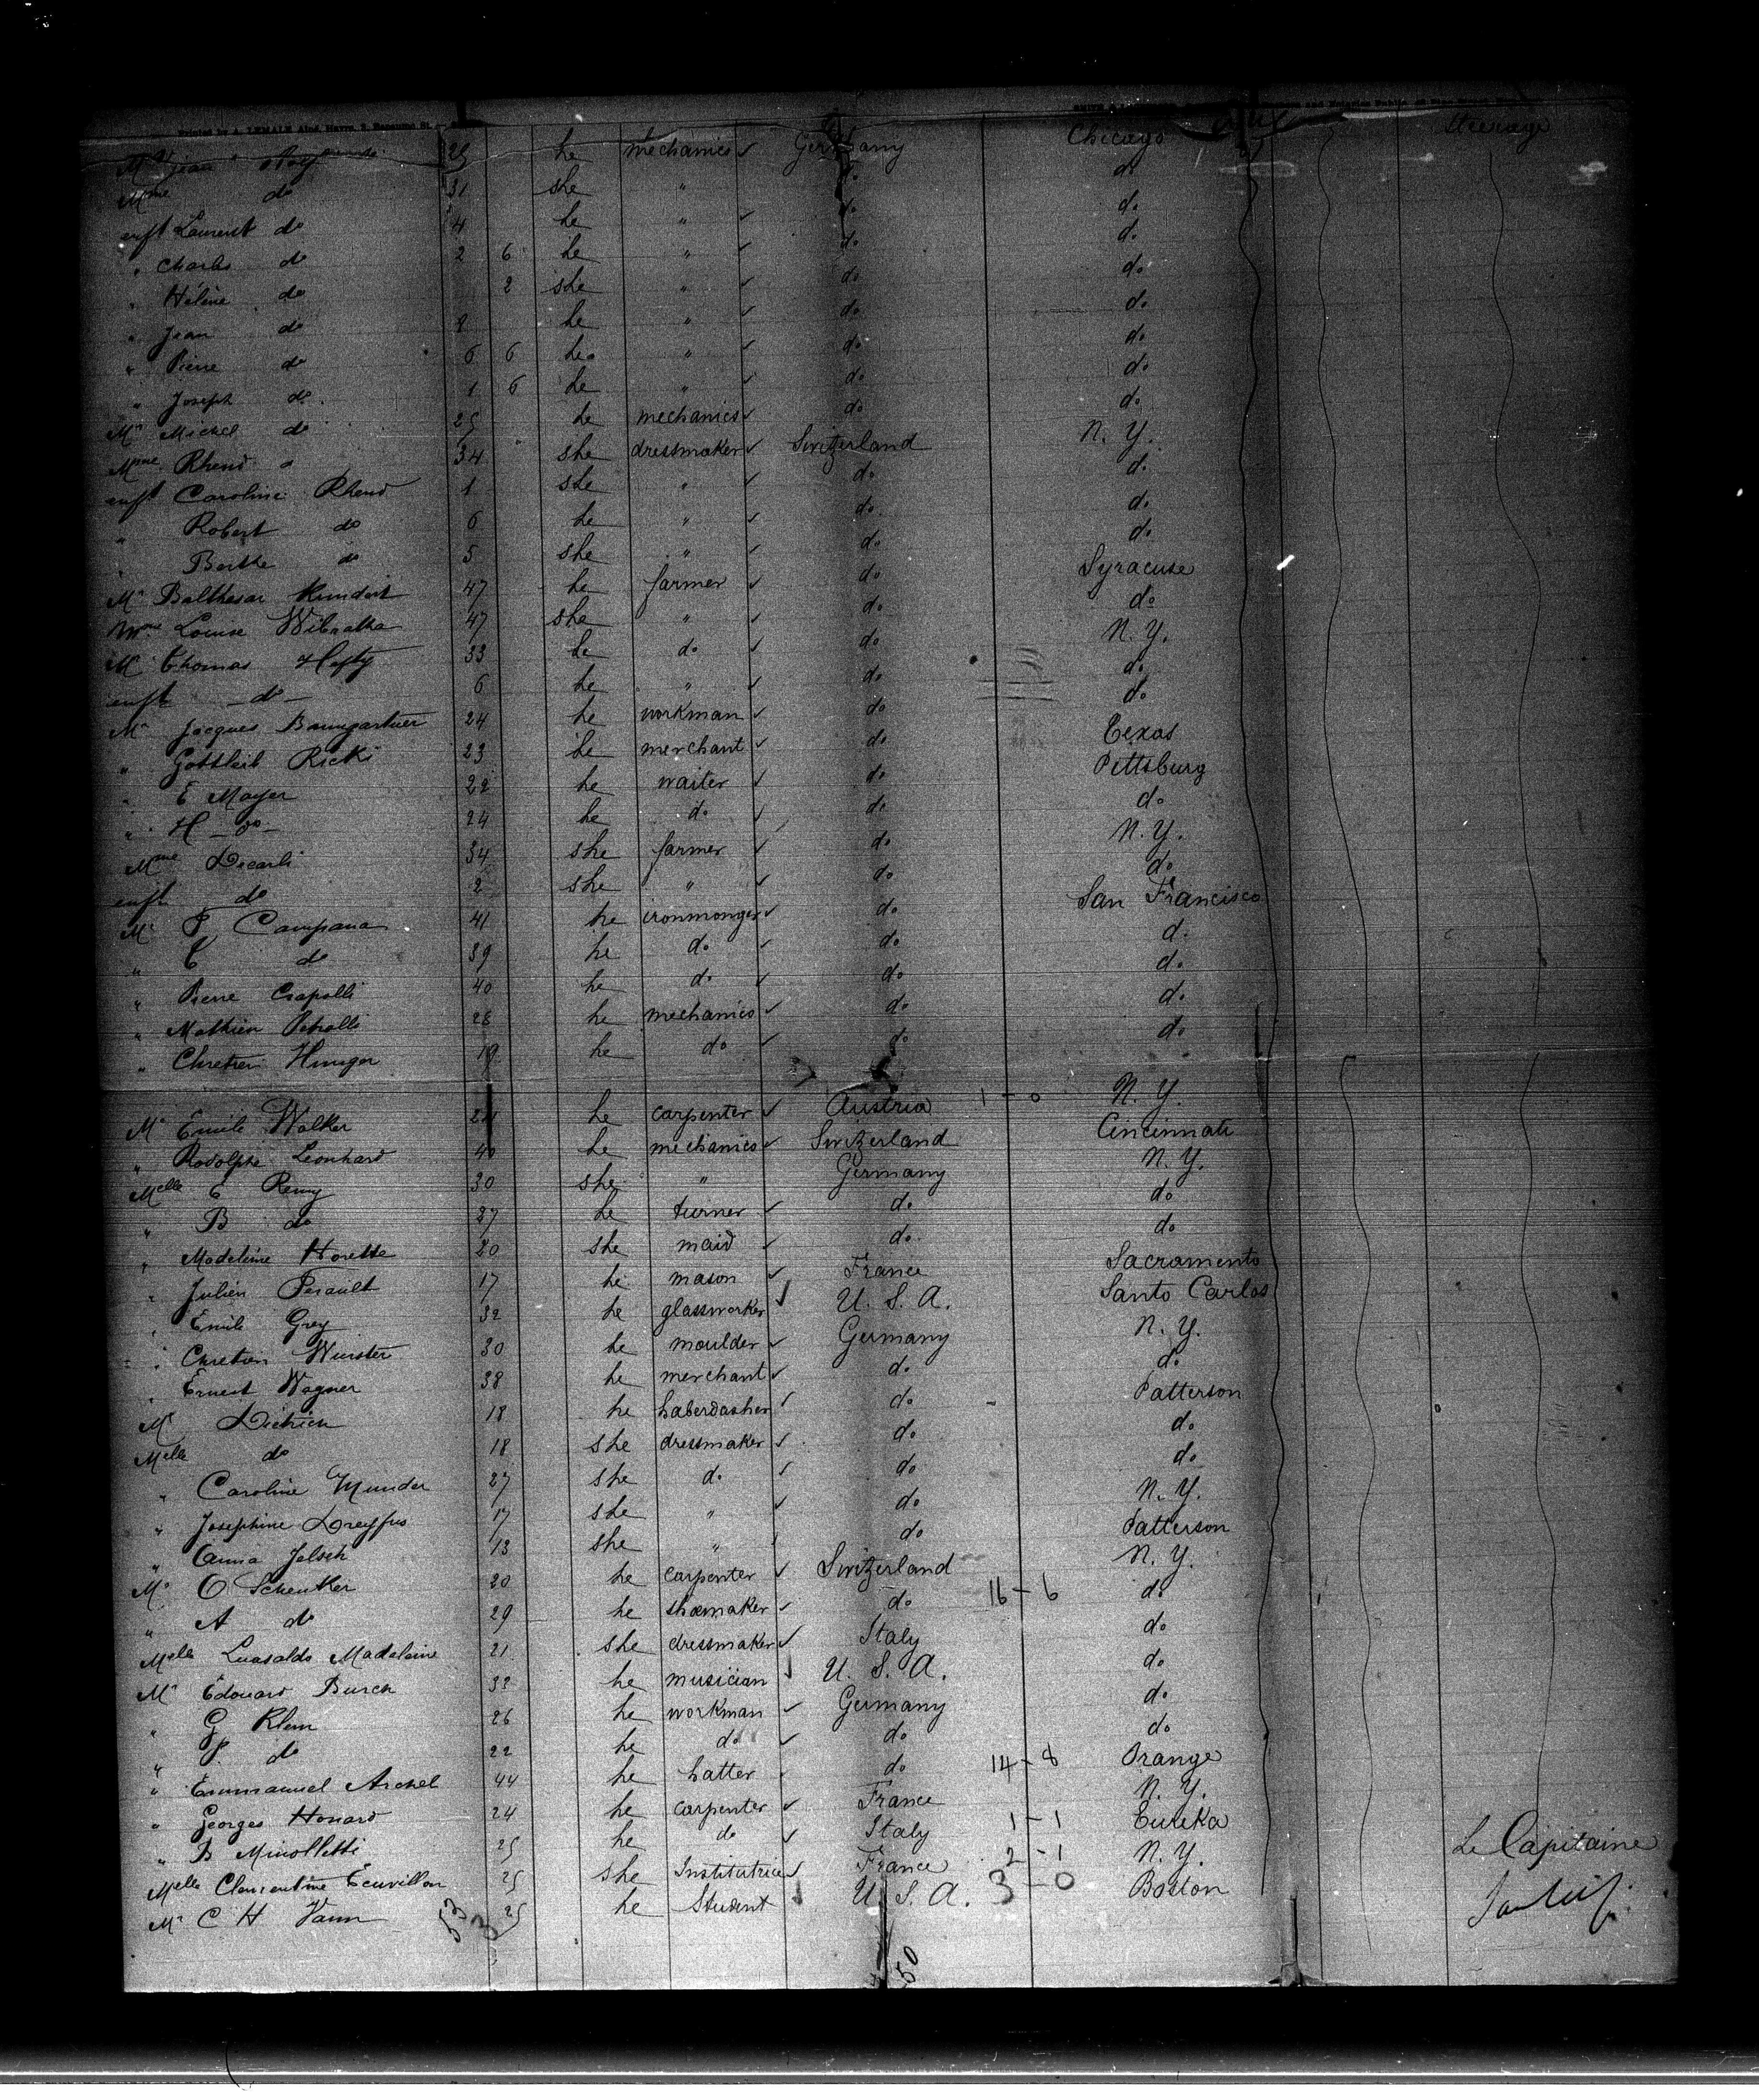 Printed by A. LEMALE Aîné, Havre
Mr Jean 25 he mechanics Germany Chicago Steerage
Mme do 31 she " do do
enft Laurent do 4 he " do do
" Charles do 2 6 he " do do
" Hélène do 2 she " do do
" Jean do 8 he " do do
" Pierre do 6 6 he " do do
" Joseph do 1 6 he " do do
Mr Michel do 25 he mechanics do do
Mme Rhend 34 she dressmaker Switzerland N. Y.
enft Caroline Rhend 1 she " do do
" Robert do 6 he " do do
" Berthe do 5 she " do do
Mr Balthasar Kundert 47 he farmer do Syracuse
Mme Louise Wibratha 47 she " do do
Mr Thomas Hefty 33 he do do N. Y.
enft do 6 he " do do
Mr Jacques Baumgartner 24 he workman do do
" Gottlieb Ricki 23 he merchant do Texas
" E Mayer 22 he waiter do Pittsburg
" H do 24 he do do do
Mme Decarli 34 she farmer do N. Y.
enft do 2 she " do do
Mr F Campana 41 he ironmonger do San Francisco
" C do 39 he do do do
" Pierre Crapolli 40 he do do do
" Mathieu Petralli 28 he mechanics do do
" Chretien Hunger 19 he do do do
Mr Emile Walker 21 he carpenter Austria 1 - 0 N. Y.
" Rodolphe Leonhard 40 he mechanics Switzerland Cincinnati
Melle E Remy 30 she " Germany N. Y.
" B do 27 he turner do do
" Madeleine Horette 20 she maid do do
" Julien Perault 17 he mason France Sacramento
" Emile Grey 32 he glassworker U. S. A. Santo Carlos
" Chretien Wurster 30 he moulder Germany N. Y.
" Ernest Wagner 38 he merchant do do
Mr Dietrich 18 he haberdasher do Patterson
Melle do 18 she dressmaker do do
" Caroline Munder 27 she do do do
" Josephine Dreyfus 17 she " do N. Y.
" Anna Jelsch 13 she " do Patterson
Mr O Schenker 20 he carpenter Switzerland N. Y.
" A do 29 he shoemaker do 16 - 6 do
Melle Luasaldo Madeleine 21 she dressmaker Italy do
Mr Edouard Burch 33 he musician U. S. A. do
" G Klem 26 he workman Germany do
" P. do 22 he do do do
" Emmanuel Archel 44 he hatter do 14 - 8 Orange
" Georges Honard 24 he carpenter France N. Y.
" B Minolletti 25 he do Italy 1 - 1 Eureka
Melle Clementine Ecuvillon 25 she Institutrice France 2 - 1 N. Y.
Mr C H Vann 25 he Student U. S. A. 3 - 0 Boston
Le Capitaine
53 3
50